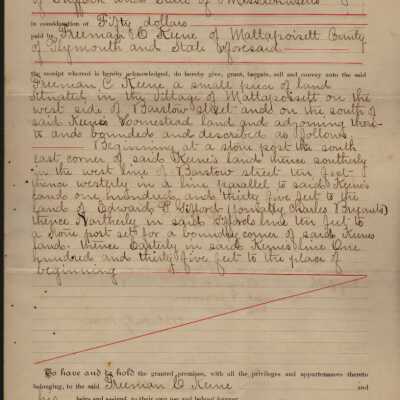 of Suffolk and State of Massachusetts
in consideration of Fifty dollars
paid by Freeman C. Keene of Mattapoisett County
of Plymouth and State aforesaid
the receipt whereof is hereby acknowledged, do hereby give, grant, bargain, sell and convey unto the said
Freeman C Keene a small piece of land
situated in the village of Mattapoisett on the
west side of Barstow Street and on the south of
said Keenes homestead land and adjoining there-
to and bounded and described as follows.
Beginning at a stone post the south
east corner of said Keene's land thence southerly
in the west line of Barstow street ten feet
thence westerly in a line parallel to said Keene's
land one hundred and thirty five feet to the
land of Edward Gifford (formally Charles Bryants)
thence Northerly in said Giffords line ten feet to
a stone post set for a boundry corner of said Keenes
land. thence Easterly in said Keenes line One
hundred and thirty five feet to the place of
beginning
To have and to hold the granted premises, with all the privileges and appurtenances thereto
belonging, to the said Freeman C Keene and
his heirs and assigns, to their own use and behoof forever.